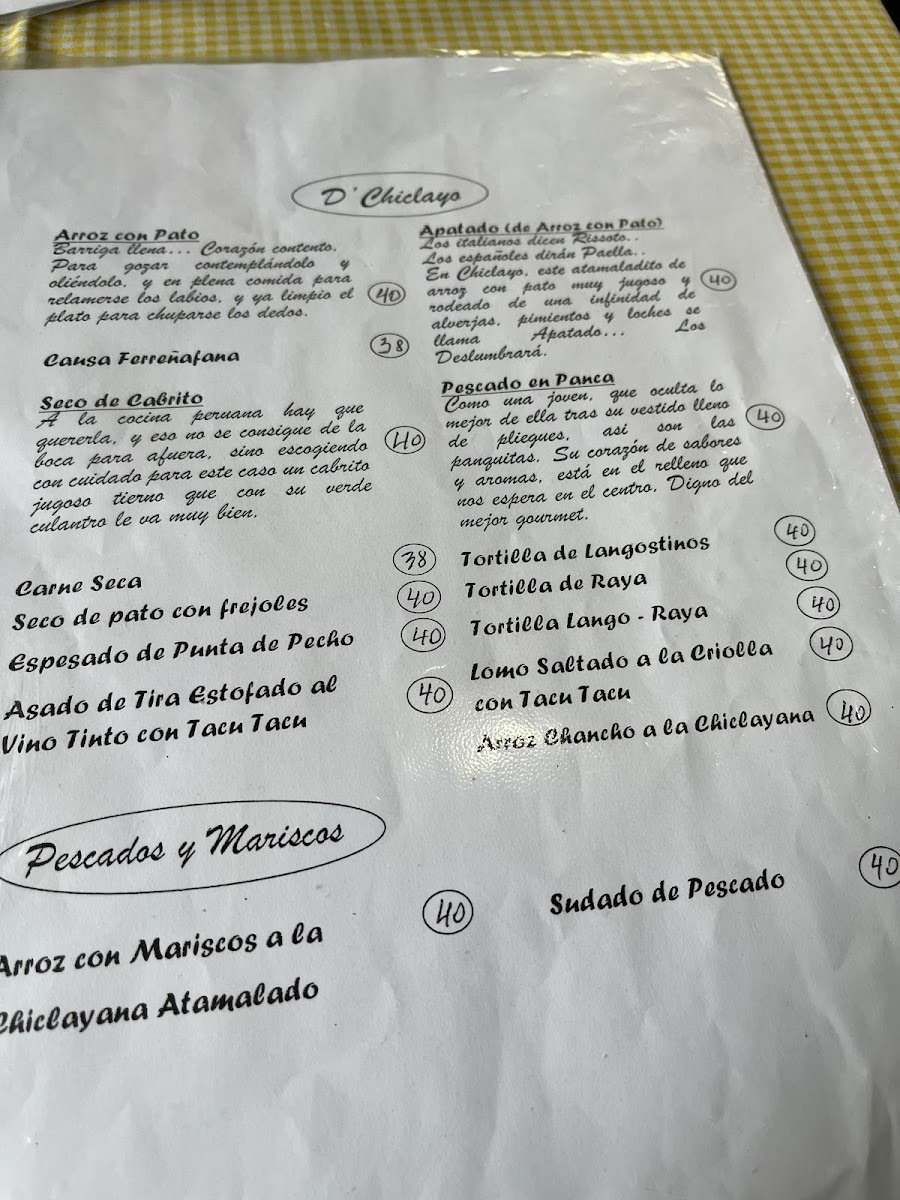 D' Chiclayo
Arroz con Pato
Barriga llena... Corazón contento.
Para gozar contemplándolo y
oliéndolo, y en plena comida para
relamerse los labios, y ya limpio el
plato para chuparse los dedos.
40
Causa Ferreñafana
38
Seco de Cabrito
A la cocina peruana hay que
quererla, y eso no se consigue de la
boca para afuera, sino escogiendo
con cuidado para este caso un cabrito
jugoso tierno que con su verde
culantro le va muy bien.
40
Carne Seca
38
Seco de pato con frejoles
40
Espesado de Punta de Pecho
40
Asado de Tira Estofado al
Vino Tinto con Tacu Tacu
40
Apatado (de Arroz con Pato)
Los italianos dicen Rissoto..
Los españoles dirán Paella..
En Chiclayo, este atamaladito de
arroz con pato muy jugoso y
rodeado de una infinidad de
alverjas, pimientos y loches se
llama Apatado... Los
Deslumbrará.
40
Pescado en Panca
Como una joven, que oculta lo
mejor de ella tras su vestido lleno
de pliegues, asi son las
panquitas. Su corazón de sabores
y aromas, está en el relleno que
nos espera en el centro. Digno del
mejor gourmet.
40
Tortilla de Langostinos
40
Tortilla de Raya
40
Tortilla Lango - Raya
40
Lomo Saltado a la Criolla
con Tacu Tacu
40
Arroz Chancho a la Chiclayana
40
Pescados y Mariscos
Arroz con Mariscos a la
Chiclayana Atamalado
40
Sudado de Pescado
40